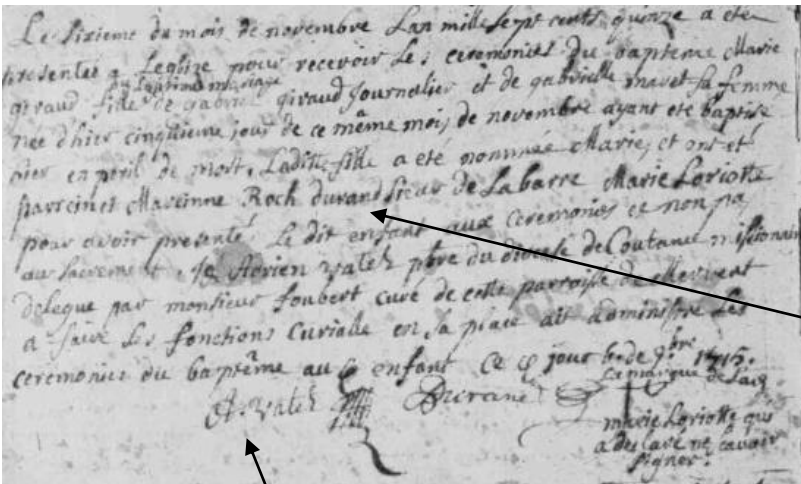 Le sixieme du mois de novembre Lan mille sept cents quinze a eté
presentée a Leglize pour recevoir les ceremonies du bapteme Marie
en legitime mariage
giraud fille de gabriel giraud Journalier et de gabrielle maret sa femme
née d'hier cinquieme jour de ce même mois de novembre ayant eté baptisé
hier en peril de mort, Laditte fille a eté nommée Marie, et ont eté
parrein et Mareinne Roch durand sieur de Labarre Marie Loriotte
pour avoir presenté Le dit enfant aux ceremonies et non pa
au sacrement, Je Adrien valet pbre du diocese de Coutance missionnair
delegue par monsieur foubert curé de cette parroisse de Mervent
a faire les fonctions Curialle en sa place ait administré Les
ceremonies du baptême au enfant Ce jour 6e de 9bre 1715.
A. valet Durand ce marque de Lad
marie Loriotte qui
a declaré ne scavoir
signer.